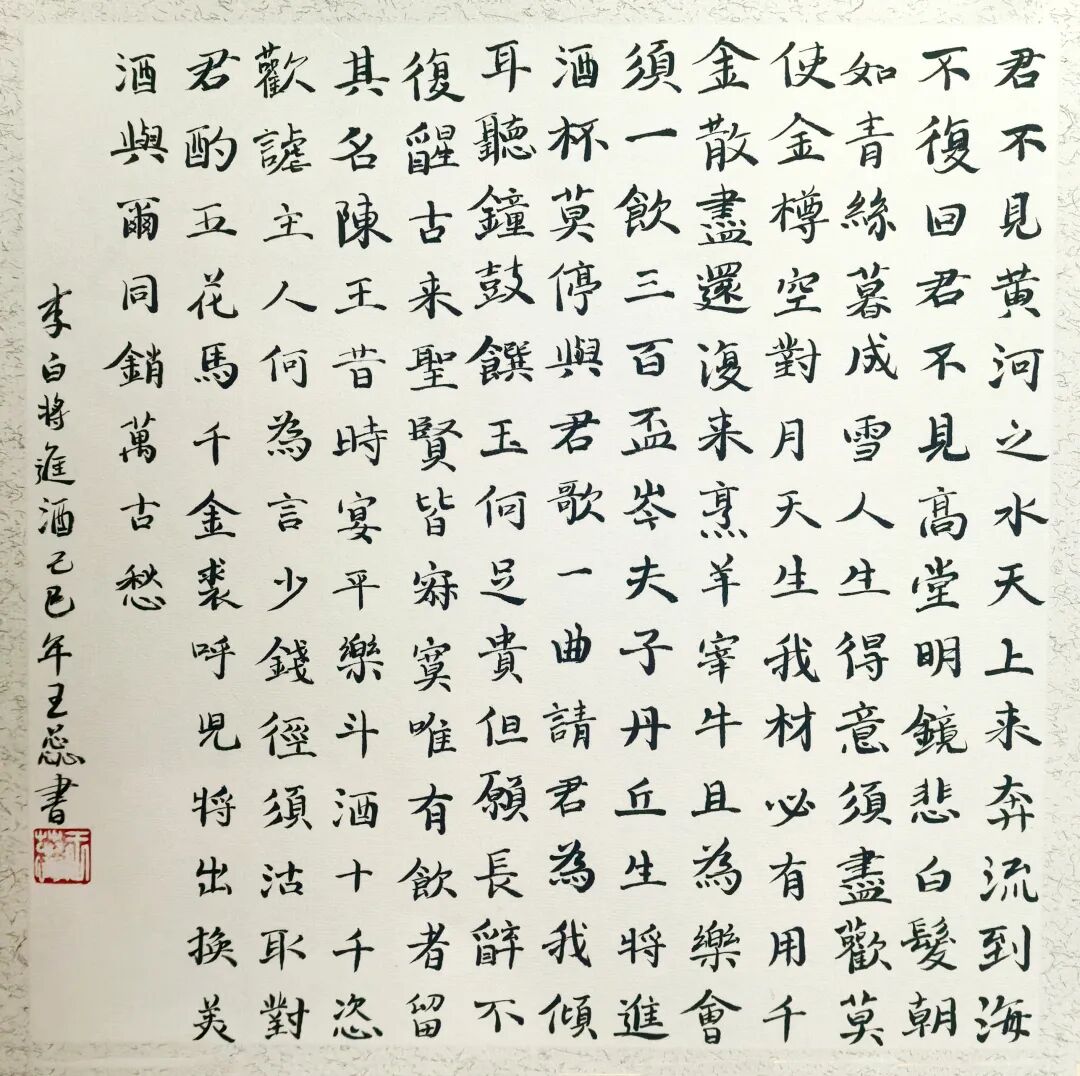 君不見黄河之水天上来奔流到海
不復回君不見高堂明鏡悲白髮朝
如青絲暮成雪人生得意須盡歡莫
使金樽空對月天生我材必有用千
金散盡還復来烹羊宰牛且為樂會
須一飲三百盃岑夫子丹丘生将進
酒杯莫停與君歌一曲請君為我傾
耳聽鐘鼓饌玉何足貴但願長醉不
復醒古来聖賢皆寂寞唯有飲者留
其名陳王昔時宴平樂斗酒十千恣
歡謔主人何為言少錢徑須沽取對
君酌五花馬千金裘呼兒将出換美
酒與爾同銷萬古愁
李白将進酒乙巳年王蕊書